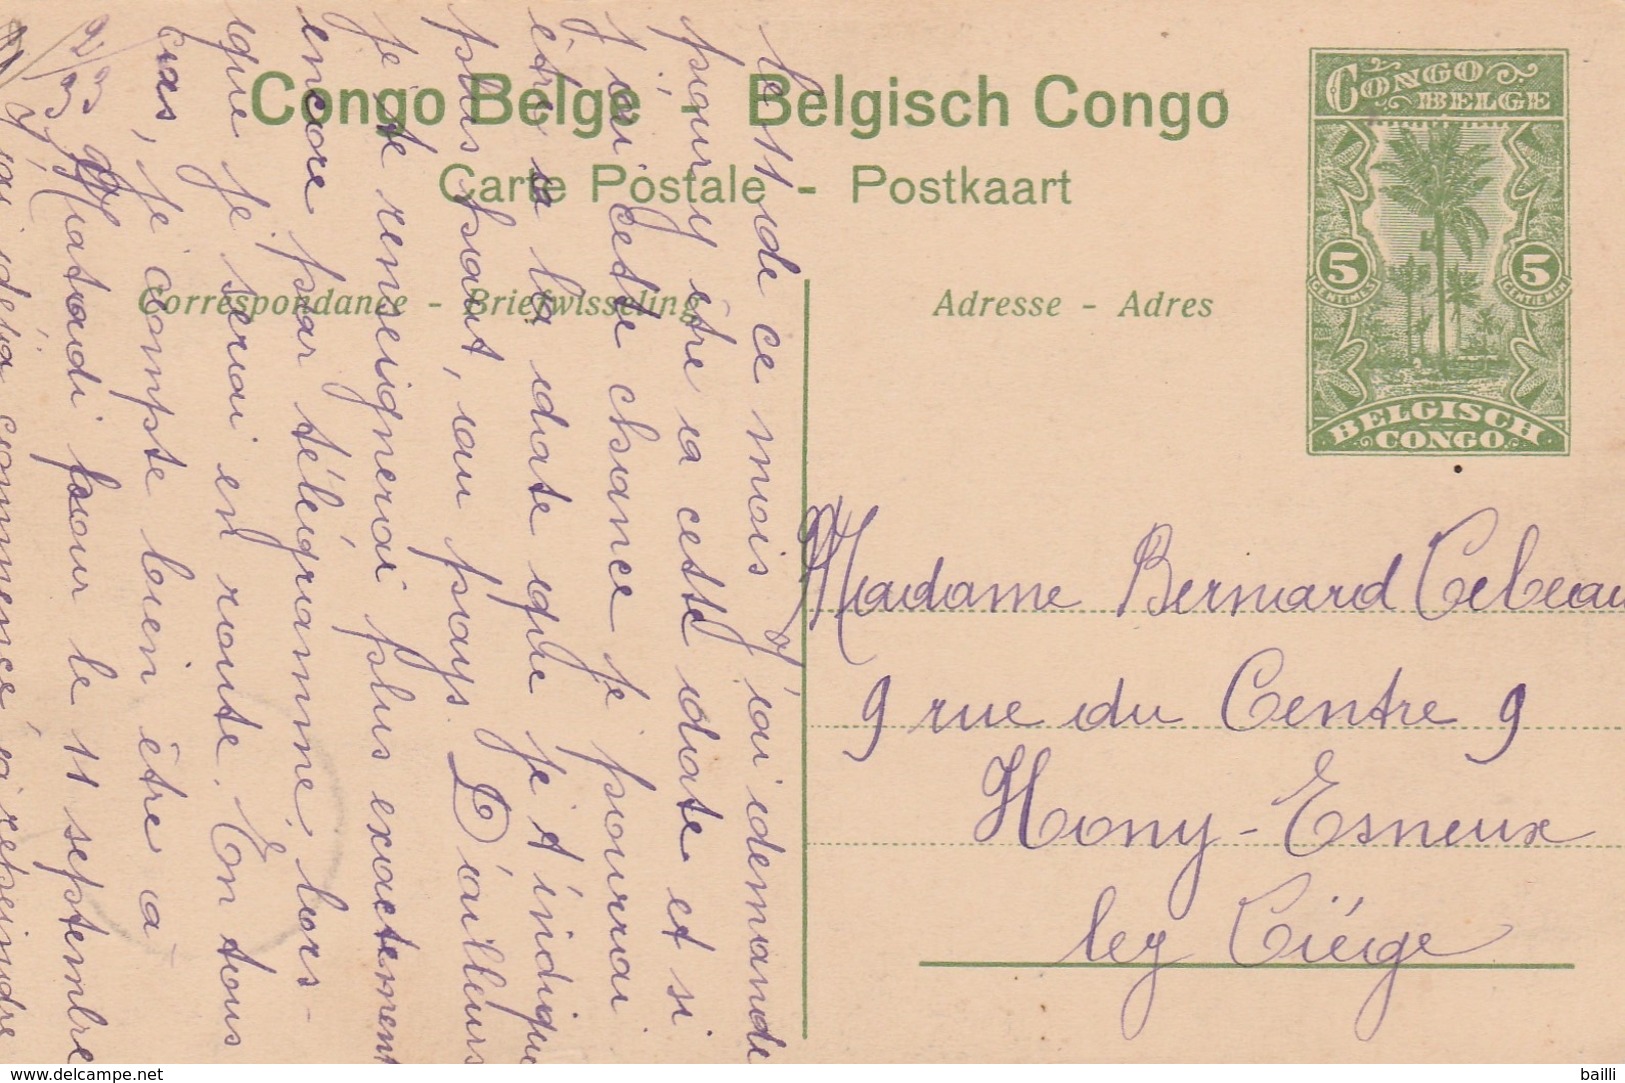 Congo Belge - Belgisch Congo
Carte Postale - Postkaart
Correspondance - Briefwisseling
Adresse - Adres
CONGO BELGE
5 CENTIMES
5 CENTIEMEN
BELGISCH CONGO
le 11 de ce mois. J'ai demandé
pour y être à cette date et si
j'ai cette chance je pourrai
être à la date que je t'indique
plus haut, au pays. D'ailleurs
je te renseignerai plus exactement
encore par télégramme, lors-
que je serai en route. En tous
cas, je compte bien être à
Matadi pour le 11 septembre
j'ai déjà commencé à repeindre
Madame Bernard Lebeau
9 rue du Centre 9
Hony-Esneux
lez Liége
www.delcampe.net
bailli